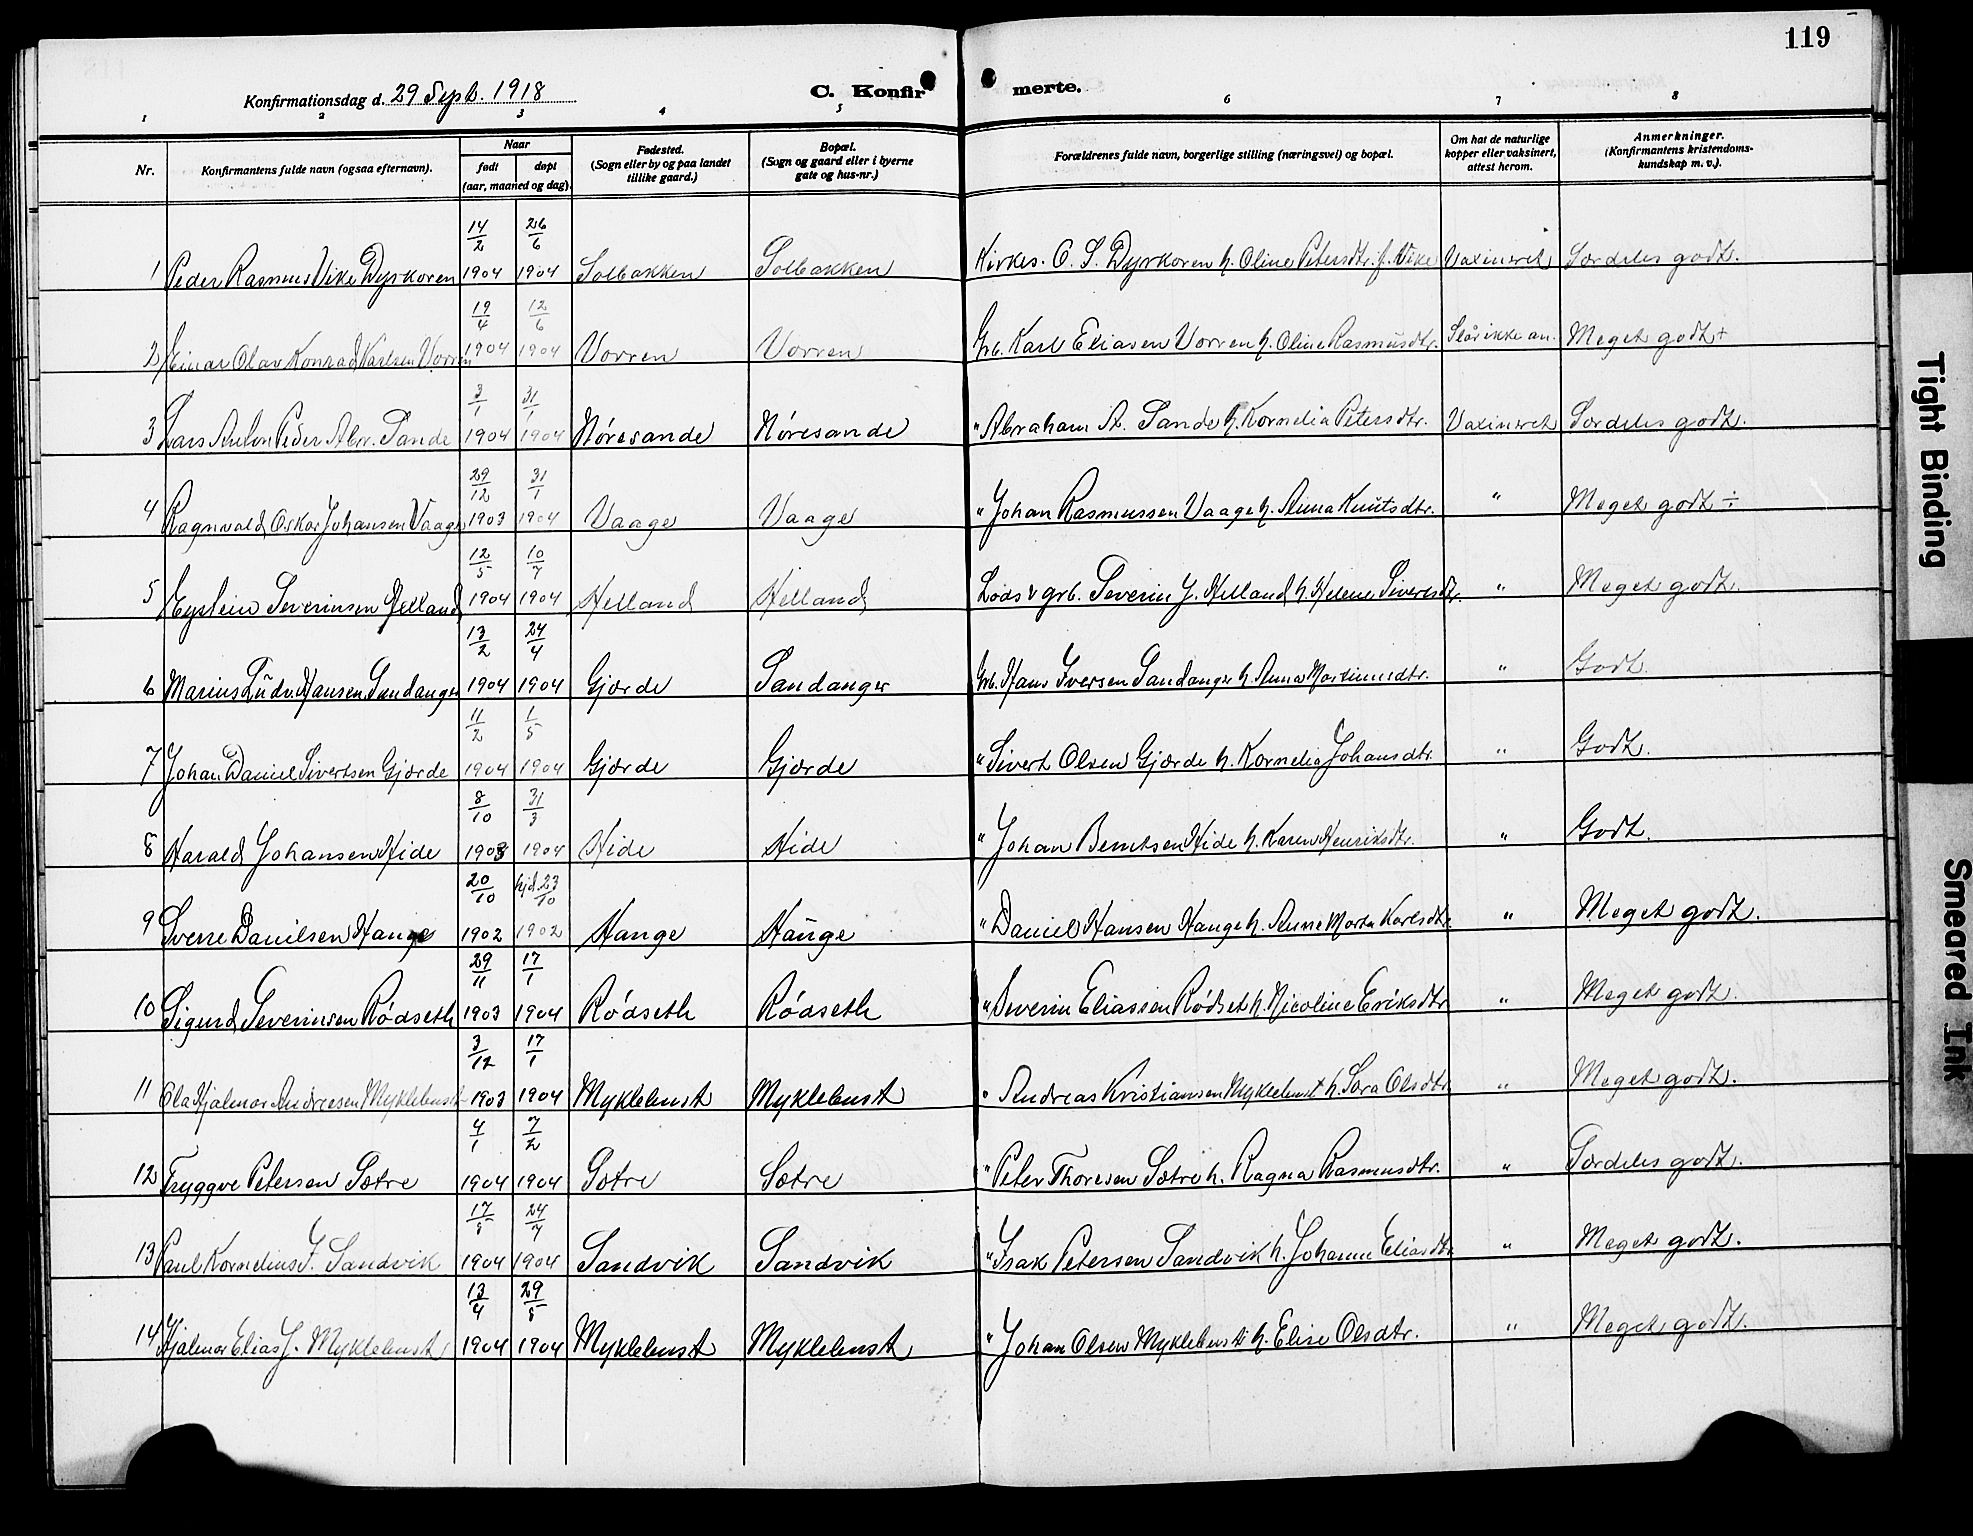 119
Konfirmationsdag d. 29 Sept. 1918 C. Konfirmerte.
1 2 3 4 5 6 7 8
Nr. Konfirmantens fulde navn (ogsaa efternavn). Naar født døpt (aar, maaned og dag). Fødested. (Sogn eller by og paa landet tillike gaard.) Bopæl. (Sogn og gaard eller i byerne gate og hus-nr.) Forældrenes fulde navn, borgerlige stilling (næringsvei) og bopæl. Om hat de naturlige kopper eller vaksinert, attest herom. Anmerkninger. (Konfirmantens kristendoms-kundskap m. v.).
1 Peder Rasmus Vike Dyrkoren 14/2 1904 26/6 1904 Solbakken Solbakken Kirkes. O. S. Dyrkoren h. Oline Petersdtr. f. Vike Vaxineret Særdeles godt.
2 Einar Olav Konrad Karlsen Vorren 19/4 1904 12/6 1904 Vorren Vorren Grb. Karl Eliasen Vorren h. Oline Rasmusdtr. Slår ikke an. Meget godt +
3 Lars Anton Peder Abr. Sande 3/1 1904 31/1 1904 Nøresande Nøresande " Abraham A. Sande h. Kornelia Petersdtr. Vaxineret Særdeles godt.
4 Ragnvald Oskar Johansen Vaage 29/12 1903 31/1 1904 Vaage Vaage " Johan Rasmussen Vaage h. Anna Knutsdtr. " Meget godt ÷
5 Eystein Severinsen Helland 12/5 1904 10/7 1904 Helland Helland Lods & grb. Severin J. Helland h. Helene Sivertsdtr. " Meget godt.
6 Marius Ludv. Hansen Sandanger 13/2 1904 24/4 1904 Gjærde Sandanger Grb. Hans Iversen Sandanger h. Anna Martinusdtr. " Godt.
7 Johan Daniel Sivertsen Gjærde 11/2 1904 1/5 1904 Gjærde Gjærde " Sivert Olsen Gjærde h. Kornelia Johansdtr. " Godt.
8 Harald Johansen Hide 8/10 1903 31/3 1904 Hide Hide " Johan Berntsen Hide h. Karen Henriksdtr. " Godt.
9 Sverre Danilsen Hauge 20/10 1902 hjd. 23/10 1902 Hauge Hauge " Daniel Hansen Hauge h. Anne Marta Karlsdtr. " Meget godt.
10 Sigurd Severinsen Rødseth 29/11 1903 17/1 1904 Rødseth Rødseth " Severin Eliassen Rødset h. Nicoline Eriksdtr. " Meget godt.
11 Ola Hjalmar Andreesen Myklebust 3/12 1903 17/1 1904 Myklebust Myklebust " Andreas Kristiansen Myklebust h. Sara Olsdtr. " Meget godt.
12 Tryggve Petersen Sætre 4/1 1904 7/2 1904 Sætre Sætre " Peter Thoresen Sætre h. Ragna Rasmusdtr. " Særdeles godt.
13 Paul Kornelius I. Sandvik 17/5 1904 24/7 1904 Sandvik Sandvik " Isak Petersen Sandvik h. Johanne Eliasdtr. " Meget godt.
14 Hjalmar Elias J. Myklebust 13/4 1904 29/5 1904 Myklebust Myklebust " Johan Olsen Myklebust h. Elise Olsdtr. " Meget godt.
Tight Binding
Smeared Ink